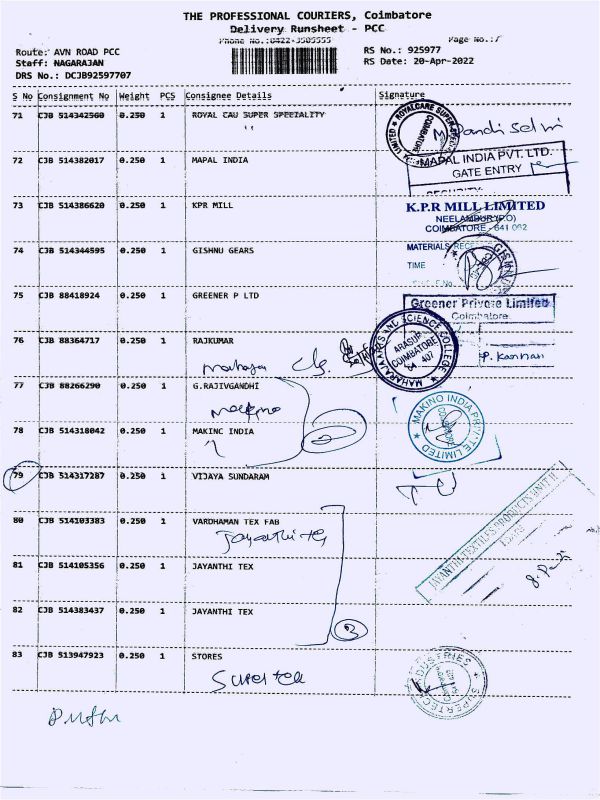 THE PROFESSIONAL COURIERS, Coimbatore
Delivery Runsheet - PCC
Phone No.:0422-3505555 Page No.:7
Route: AVN ROAD PCC RS No.: 925977
Staff: NAGARAJAN RS Date: 20-Apr-2022
DRS No.: DCJB92597707
S No Consignment No Weight PCS Consignee Details Signature
71 CJB 514342560 0.250 1 ROYAL CAU SUPER SPECIALITY
ROYALCARE SUPER LIMITED COIMBATORE
72 CJB 514382017 0.250 1 MAPAL INDIA
MAPAL INDIA PVT. LTD.
GATE ENTRY
SECURITY
73 CJB 514386620 0.250 1 KPR MILL
K.P.R MILL LIMITED
NEELAMBUR (P.O)
COIMBATORE - 641 062
MATERIALS
TIME
74 CJB 514344595 0.250 1 GISHNU GEARS
75 CJB 88418924 0.250 1 GREENER P LTD
Greener Private Limited
Coimbatore
76 CJB 88364717 0.250 1 RAJKUMAR
MAHARAJA ARTS AND SCIENCE COLLEGE
ARASUR
COIMBATORE
641 407
P. Kannan
77 CJB 88266290 0.250 1 G.RAJIVGANDHI
78 CJB 514318042 0.250 1 MAKINC INDIA
MAKINO INDIA PRIVATE LIMITED
COIMBATORE
79 CJB 514317287 0.250 1 VIJAYA SUNDARAM
80 CJB 514103383 0.250 1 VARDHAMAN TEX FAB
Jayanthi tex
81 CJB 514105356 0.250 1 JAYANTHI TEX
JAYANTHI TEXTILES PRODUCTS UNIT II
82 CJB 514383437 0.250 1 JAYANTHI TEX
3
83 CJB 513947923 0.250 1 STORES
SUPERTECH INDUSTRIES